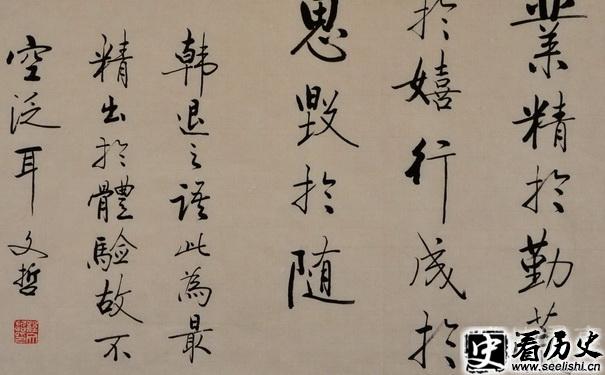 業精於勤荒
於嬉行成於
思毀於随
韓退之語此為最
精出於體驗故不
空泛耳 文哲
史 看历史
www.seelishi.cn